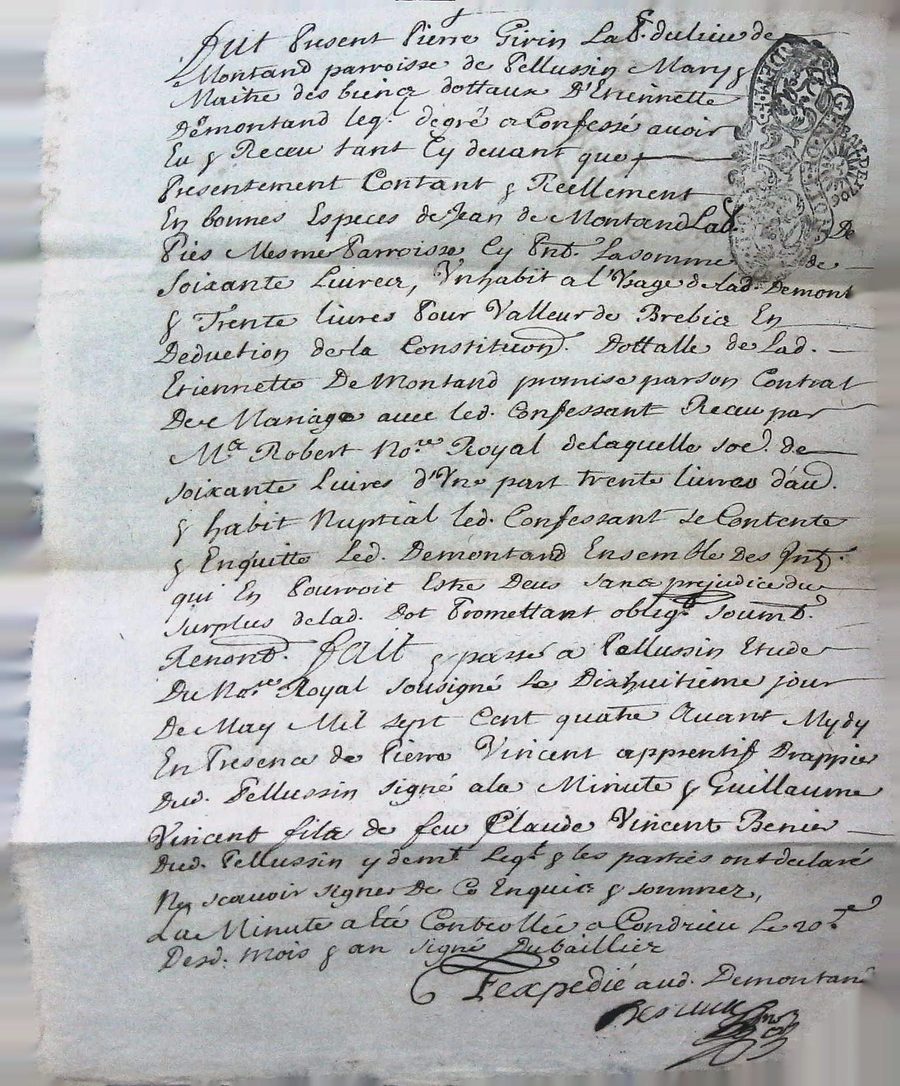 Fut Present Pierre Girin Lab.r du lieu de
Montand parroisse de Pellussin Mary &
Maitre des biens dottaux D'Etiennette
Demontand leq.l de gré a Confessé avoir
Eu & Receu tant Cy devant que
Presentement Contant & Reellement
En bonnes Especes de Jean de Montand Lab. De
Mesme Parroisse Cy Pnt. La somme de
Soixante Livres, Vn habit a l'Vsage de lad. Demont
& Trente livres Pour Valleur de Brebis En
Deduction de la Constitution Dottalle de Lad.
Etiennette De Montand promise par son Contrat
De Mariage avec led. Confessant Receu par
M.e Robert No.re Royal de laquelle so.e de
soixante Livres d'Vne part trente livres d'au.
& habit Nuptial led. Confessant se Contente
& Enquitte Led. Demontand Ensemble Des Jnt.
qui En Pourroit Estre Deus sans prejudice du
surplus de lad. Dot Promettant oblig. soumt.
Renont. fait & passé a Pellussin Etude
Du No.re Royal sousigné Le Dixhuitieme jour
De May Mil sept Cent quatre Avant Mydy
En Presence de Pierre Vincent apprentif Drappier
Dud. Pellussin signé a la Minute & Guillaume
Vincent fils de feu Claude Vincent Benier
Dud. Pellussin y demt. Leq.l & les parties ont declaré
Ne scavoir signer De Ce Enquis & sommez,
La Minute a Eté Controllée a Condrieu Le 20.e
Desd. mois & an signé Dubaillier
Expedié aud. Demontand